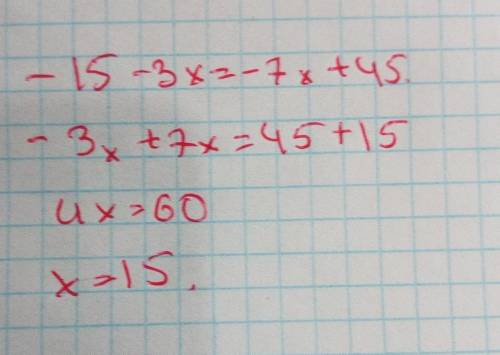 -15-3x=-7x+45.
-3x+7x=45+15
4x=60
x=15.